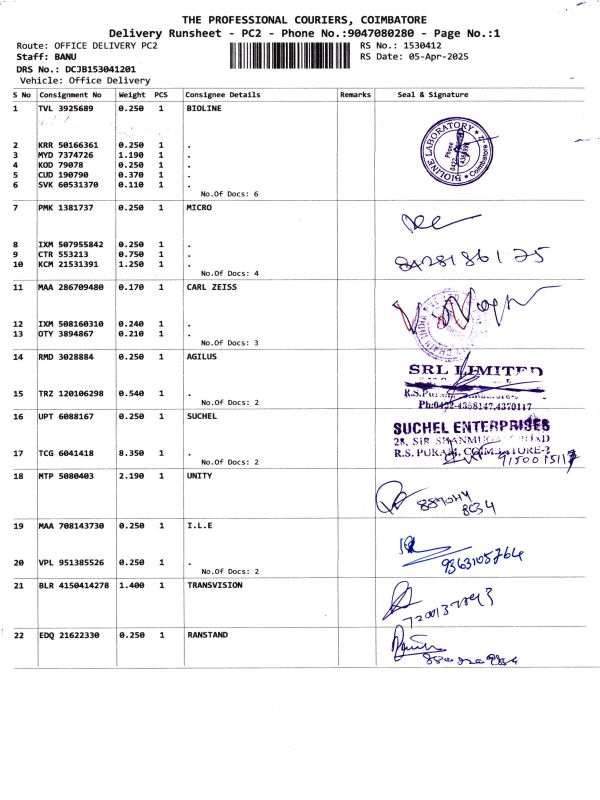 THE PROFESSIONAL COURIERS, COIMBATORE
Delivery Runsheet - PC2 - Phone No.:9047080280 - Page No.:1
Route: OFFICE DELIVERY PC2
RS No.: 1530412
Staff: BANU
RS Date: 05-Apr-2025
DRS No.: DCJB153041201
Vehicle: Office Delivery
S No Consignment No Weight PCS Consignee Details Remarks Seal & Signature
1 TVL 3925689 0.250 1 BIOLINE
BIOLINE LABORATORY
Coimbatore
Phone
2 KRR 50166361 0.250 1 .
3 MYD 7374726 1.190 1 .
4 KOD 79078 0.250 1 .
5 CUD 190790 0.370 1 .
6 SVK 60531370 0.110 1 .
No.Of Docs: 6
7 PMK 1381737 0.250 1 MICRO
8 IXM 507955842 0.250 1 .
9 CTR 553213 0.750 1 .
10 KCM 21531391 1.250 1 .
No.Of Docs: 4
11 MAA 286709480 0.170 1 CARL ZEISS
12 IXM 508160310 0.240 1 .
13 OTY 3894867 0.210 1 .
No.Of Docs: 3
14 RMD 3028884 0.250 1 AGILUS
SRL LIMITED
15 TRZ 120106298 0.540 1 .
No.Of Docs: 2
Ph:0422-4358147,4370117
16 UPT 6088167 0.250 1 SUCHEL
SUCHEL ENTERPRISES
28, SIR
R.S. PURAM, COIMBATORE-2
17 TCG 6041418 8.350 1 .
No.Of Docs: 2
18 MTP 5080403 2.190 1 UNITY
19 MAA 708143730 0.250 1 I.L.E
20 VPL 951385526 0.250 1 .
No.Of Docs: 2
9363105764
21 BLR 4150414278 1.400 1 TRANSVISION
22 EDQ 21622330 0.250 1 RANSTAND